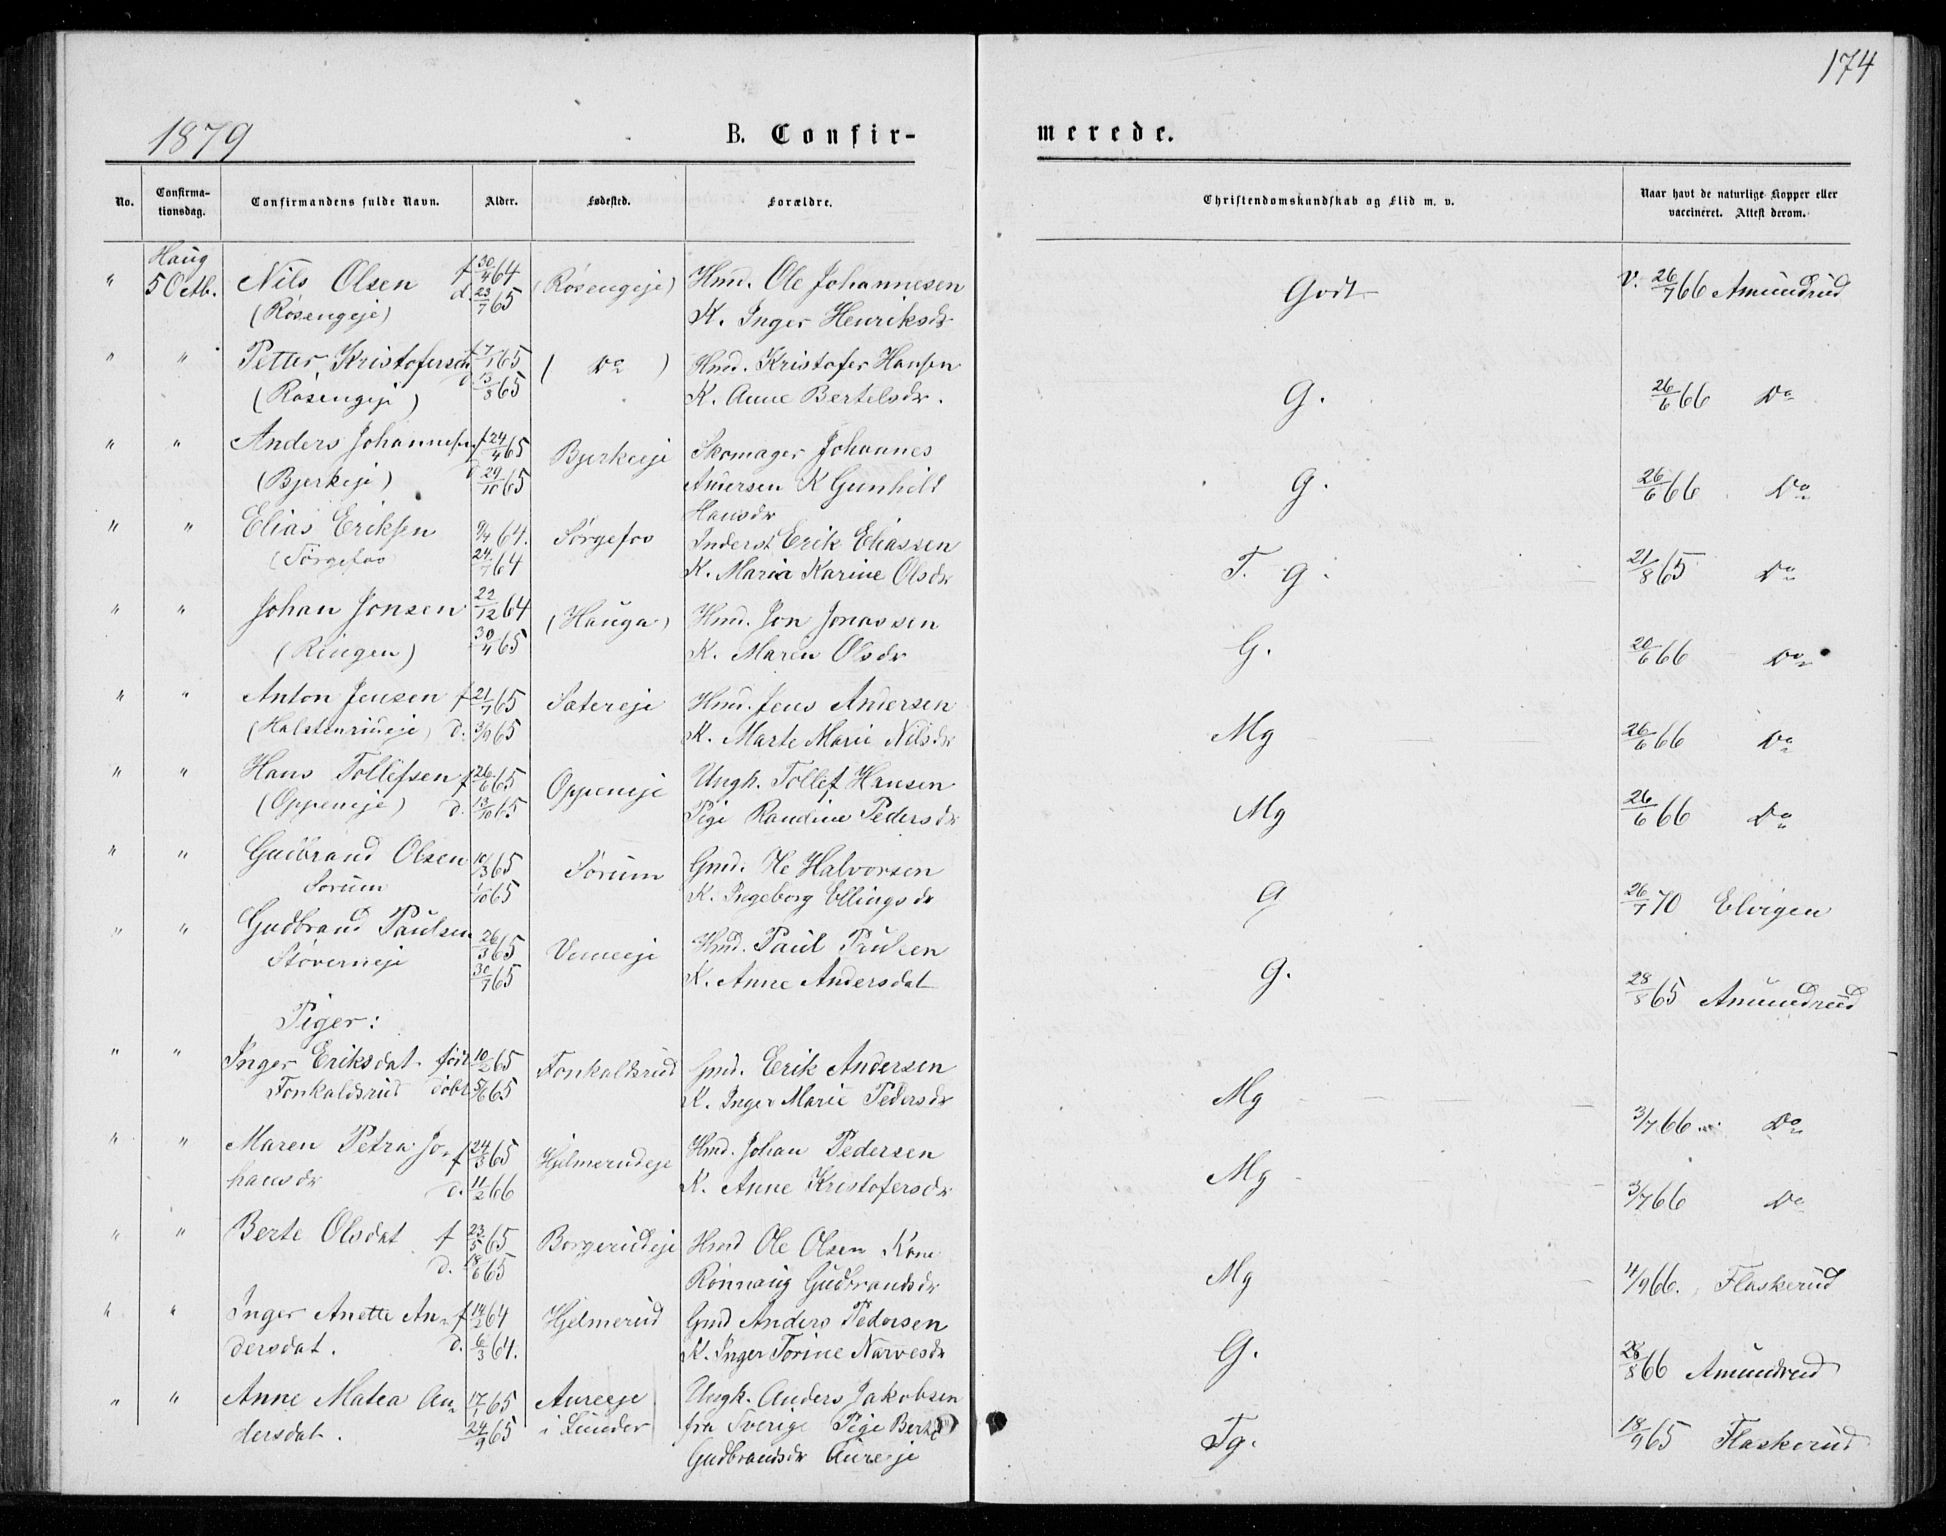 174
1879
B. Confir-
merede.
No.
Confirma-
tionsdag.
Confirmandens fulde Navn.
Alder.
Fødested.
Forældre.
Christendomskundskab og Flid m. v.
Naar havt de naturlige Kopper eller
vaccineret. Attest derom.
Haug
" 5 Octb. Nils Olsen f 30/4 64 (Røsengeje) Hmd. Ole Johannesen Godt v. 26/7 66 Amundrud
(Røsengeje) d. 23/7 65 K. Inger Henriksdr
" " Petter Kristofersen f 7/1 65 ( Do ) Hmd. Kristofer Hansen G. 26/6 66 Do
(Røsengeje) d 13/8 65 K. Anne Bertelsdr.
" " Anders Johannesen f 24/4 65 Bjerkeeje Skomager Johannes G. 26/6 66 Do
(Bjerkeje) d 29/10 65 Andersen K Gunhild
Hansdr
" " Elias Eriksen 9/4 64. Sørgefos Inderst Erik Eliassen T. g. 21/8 65 Do
(Sørgefos 24/7 64 K. Maria Karine Olsdr
" " Johan Jonsen 22/12 64 (Hauga) Hmd. Jon Jonassen G. 20/6 66 Do
(Ringen) 30/4 65 K. Maren Olsdr
" " Anton Jensen f 21/7 65 Sætereje Hmd. Jens Andersen Mg 26/6 66 Do
(Halstenrudeje) d. 3/9 65 K. Marte Marie Nilsdr
" " Hans Tollefsen f 26/6 65 Oppeneje Ungk. Tollef Hansen Mg 26/6 66 Do
(Oppeneje) d. 13/10 65 Pige Randine Pedersdr
" " Gudbrand Olsen 10/3 65 Sørum Gmd. Ole Halvorsen G 26/7 70 Elvigen
Sørum 1/10 65 K. Ingeborg Ellingsdr
" " Gudbrand Paulsen 26/3 65 Vemeeje Hmd. Paul Paulsen G. 28/8 65 Amundrud
Støverneje 30/7 65 K. Anne Andersdat
Piger:
" " Inger Eriksdat. født 10/2 65 Fonkaldsrud Gmd. Erik Andersen Mg 3/7 66 Do
Fonkaldsrud døbt 5/6 65 K. Inger Marie Pedersdr
" " Maren Petra Jo- f 24/3 65 Hjelmerudeje Hmd. Johan Pedersen Mg 3/7 66 Do
hansdr d. 11/2 66 K. Anne Kristofersdr
" " Berte Olsdat f 23/5 65 Borgerudeje Hmd Ole Olsen Kone Mg 4/9 66. Flaskerud
d. 18/6 65 Rønnaug Gudbrandsdr
" " Inger Anette An- f 14/2 64 Hjelmerud Gmd Anders Pedersen G. 28/8 66 Amundrud
dersdat. d. 6/3 64. K. Inger Torine Narvesdr
" " Anne Matea An- 17/1 65 Aureeje Ungk. Anders Jakobsen Tg. 18/9 65 Flaskerud
dersdat. 24/9 65 i Lunder fra Sverige Pige Berthe
Gudbrandsdr Aureje